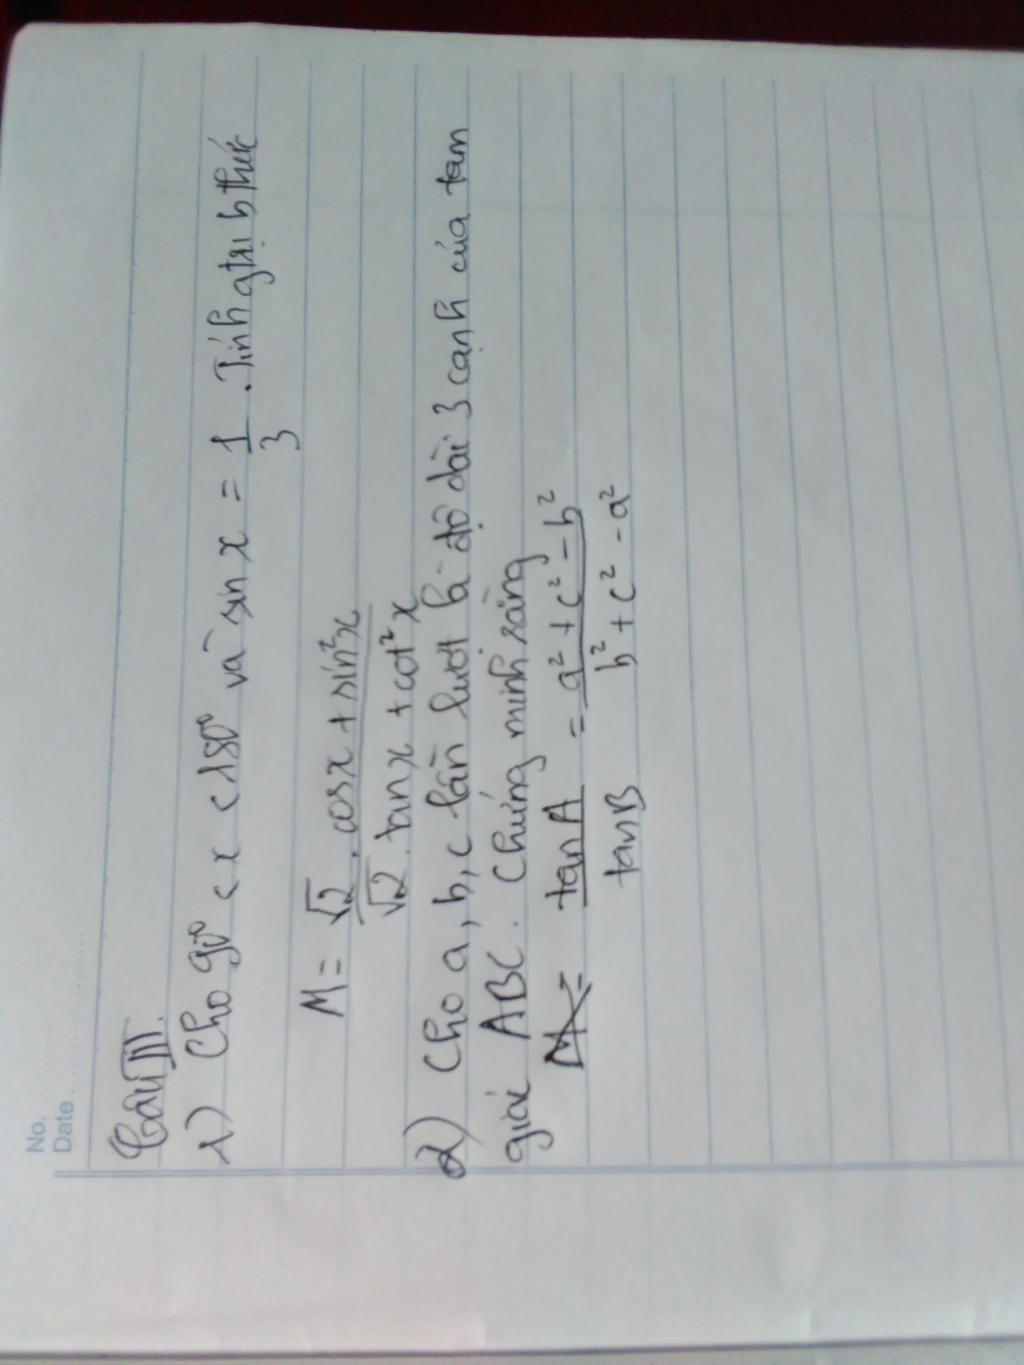 No.
Date
Câu III.
1) Cho 90° < x < 180° và sin x = 1/3 . Tính gtrị b thức
M = √2 . cosx + sin²x / √2 . tanx + cot²x
2) Cho a, b, c lần lượt là độ dài 3 cạnh của tam
giác ABC. Chứng minh rằng
M = tanA / tanB = a² + c² - b² / b² + c² - a²